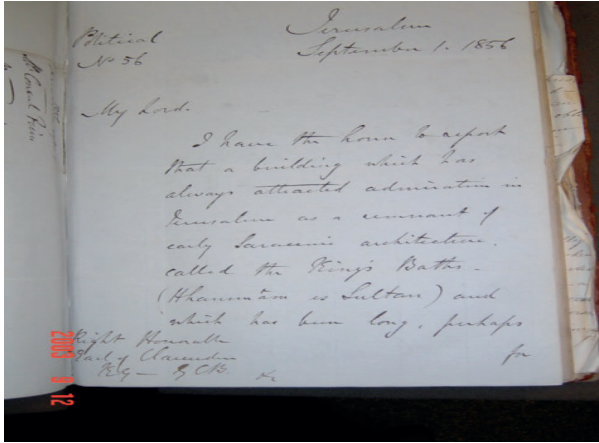 Political
Nº 56
Jerusalem
September 1. 1856
My Lord.
I have the honor to report
that a building which has
always attracted admiration in
Jerusalem as a remnant of
early Saracenic architecture.
called the King's Baths -
(Hhammâm es Sultan) and
which has been long, perhaps
for
Right Honorable
Earl of Clarendon
K.G. - G.C.B. &c
2005 9 12